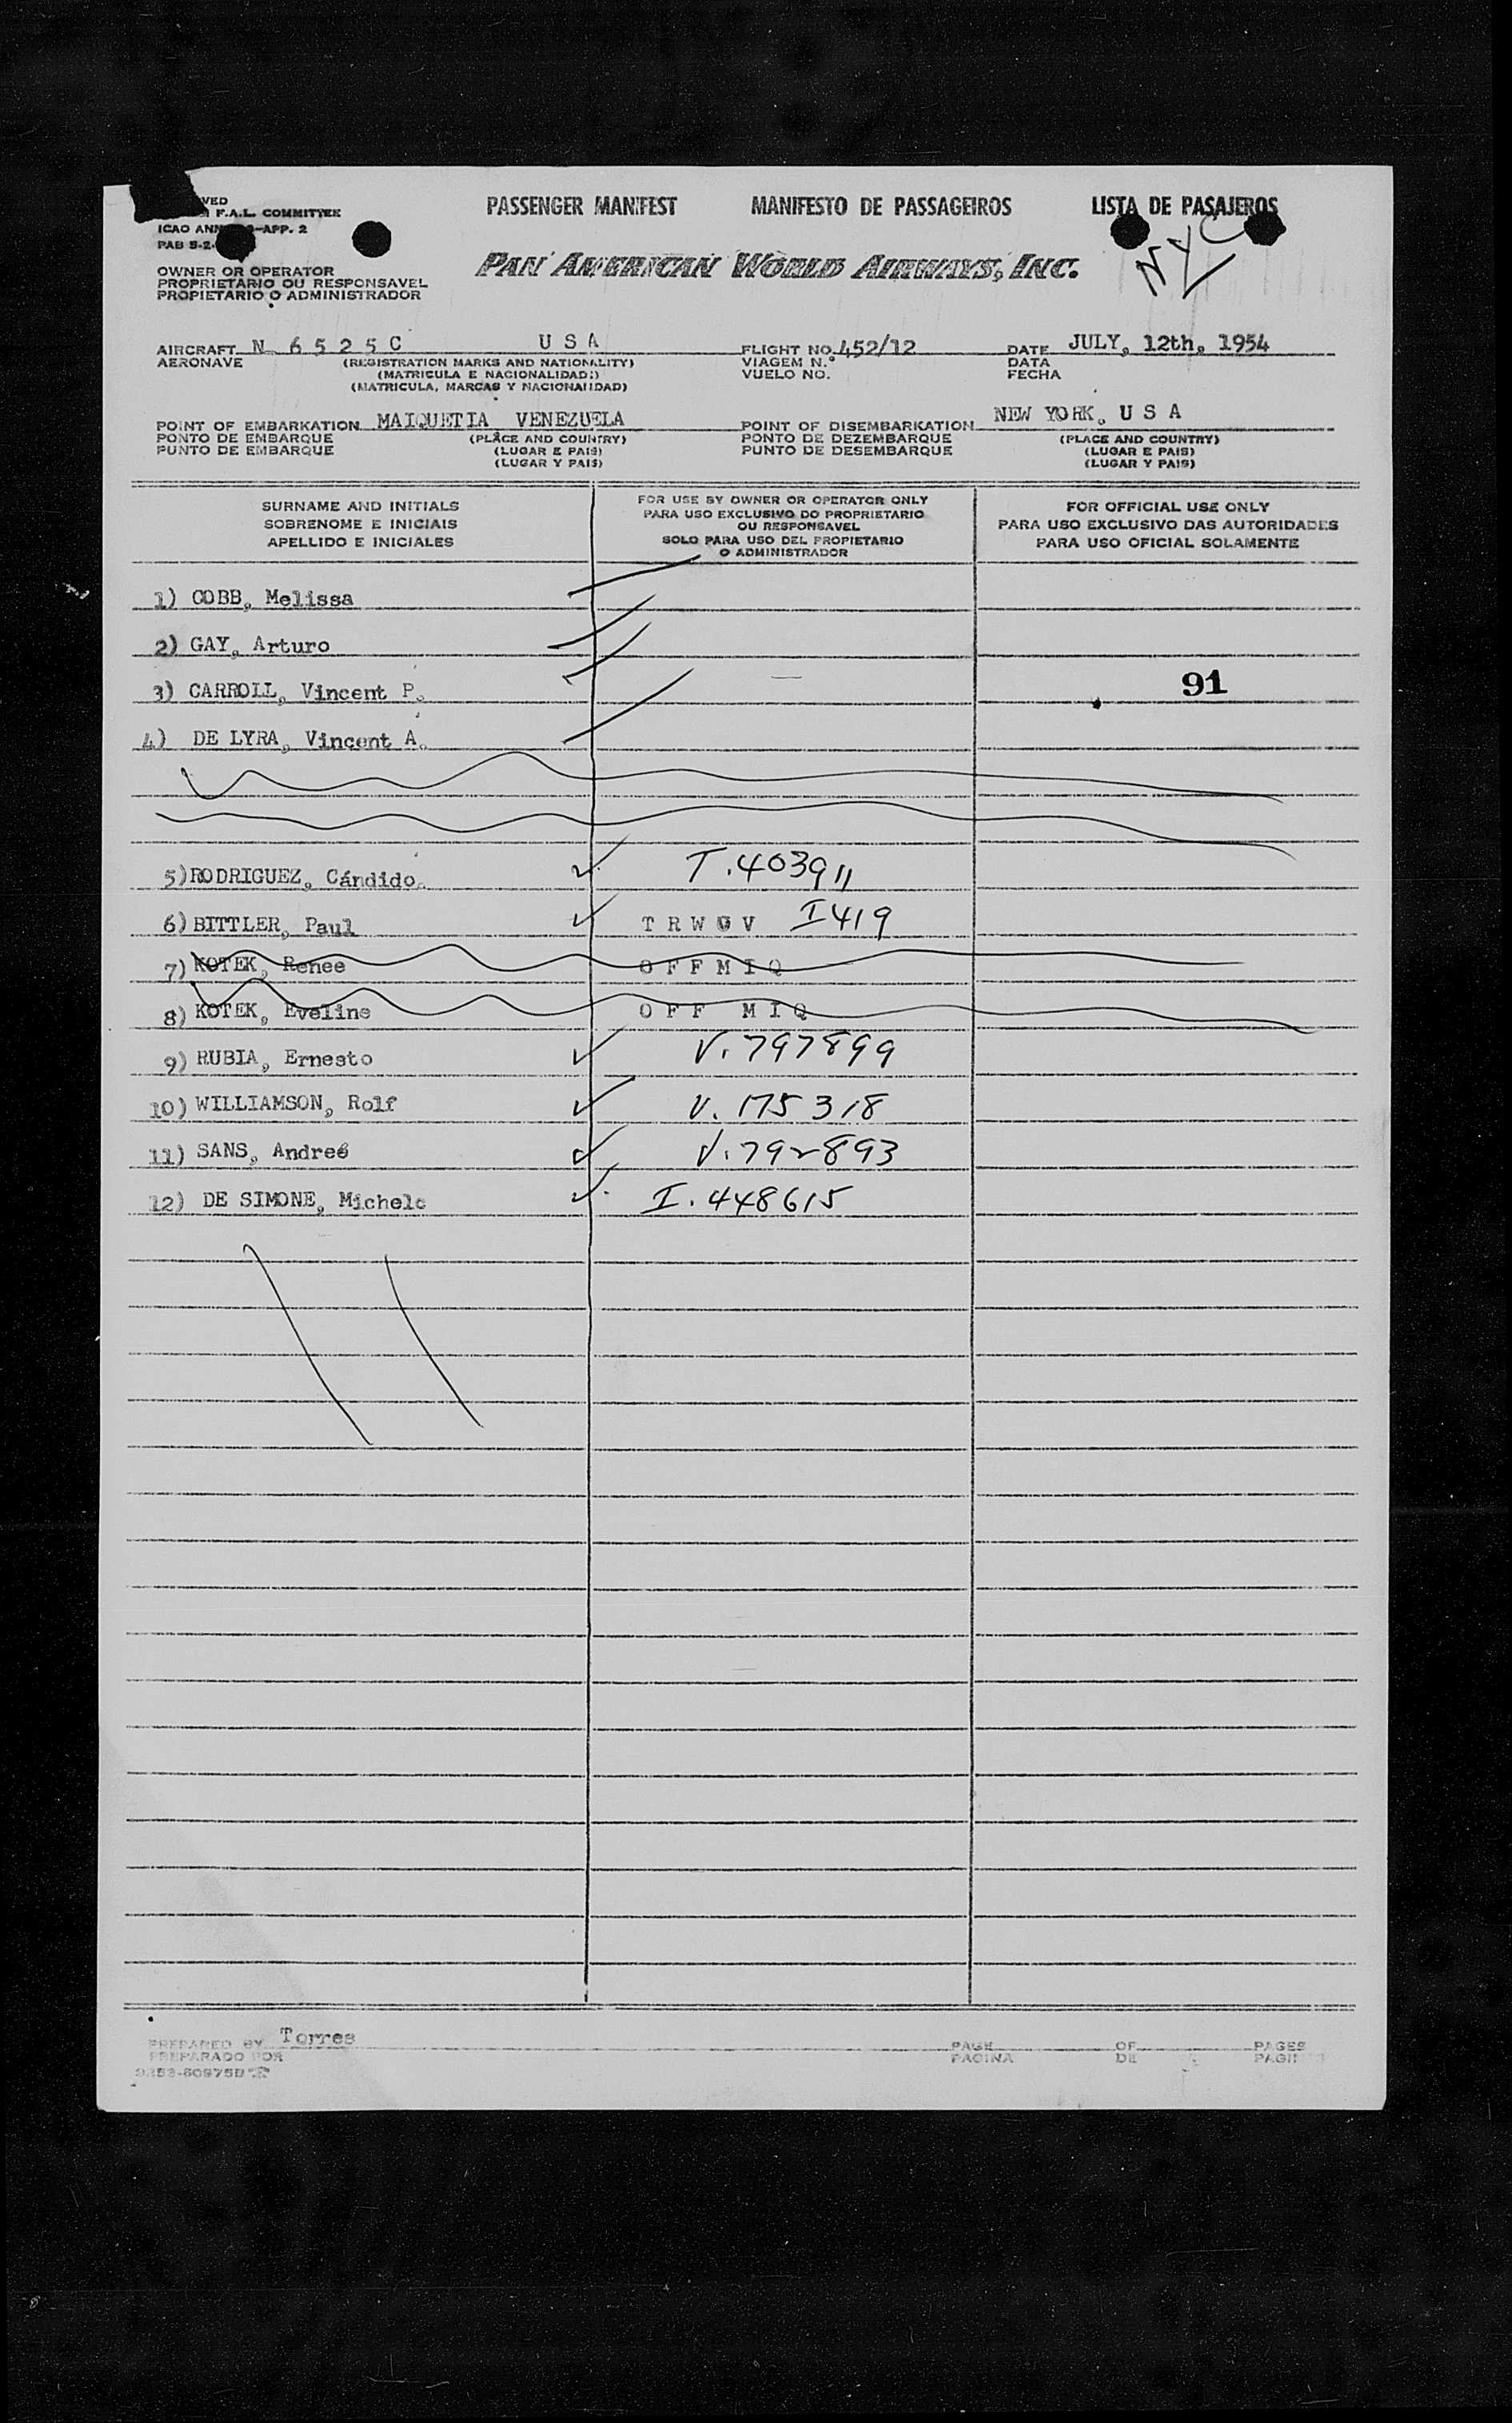 PASSENGER MANIFEST MANIFESTO DE PASSAGEIROS LISTA DE PASAJEROS
F.A.L. COMMITTEE
ICAO APP. 2
PAB
NYC
PAN AMERICAN WORLD AIRWAYS, INC.
OWNER OR OPERATOR
PROPRIETARIO OU RESPONSAVEL
PROPIETARIO O ADMINISTRADOR
AIRCRAFT N 6 5 2 5 C U S A FLIGHT NO. 452/12 DATE JULY, 12th, 1954
AERONAVE (REGISTRATION MARKS AND NATIONALITY) VIAGEM N.° DATA
(MATRICULA E NACIONALIDADE) VUELO NO. FECHA
(MATRICULA, MARCAS Y NACIONALIDAD)
POINT OF EMBARKATION MAIQUETIA VENEZUELA POINT OF DISEMBARKATION NEW YORK, U S A
PONTO DE EMBARQUE (PLACE AND COUNTRY) PONTO DE DEZEMBARQUE (PLACE AND COUNTRY)
PUNTO DE EMBARQUE (LUGAR E PAIS) PUNTO DE DESEMBARQUE (LUGAR E PAIS)
(LUGAR Y PAIS) (LUGAR Y PAIS)
SURNAME AND INITIALS
SOBRENOME E INICIAIS
APELLIDO E INICIALES
FOR USE BY OWNER OR OPERATOR ONLY
PARA USO EXCLUSIVO DO PROPRIETARIO
OU RESPONSAVEL
SOLO PARA USO DEL PROPIETARIO
O ADMINISTRADOR
FOR OFFICIAL USE ONLY
PARA USO EXCLUSIVO DAS AUTORIDADES
PARA USO OFICIAL SOLAMENTE
1) COBB, Melissa
2) GAY, Arturo
3) CARROLL, Vincent P. 91
4) DE LYRA, Vincent A.
5) RODRIGUEZ, Cándido. T.403911
6) BITTLER, Paul T R W O V I419
7) KOTEK, Renee O F F M I Q
8) KOTEK, Eveline O F F M I Q
9) RUBIA, Ernesto V.797899
10) WILLIAMSON, Rolf V.175318
11) SANS, Andreé V.792893
12) DE SIMONE, Michele I.448615
PREPARED BY Torres PAGE OF PAGES
PREPARADO POR PAGINA DE